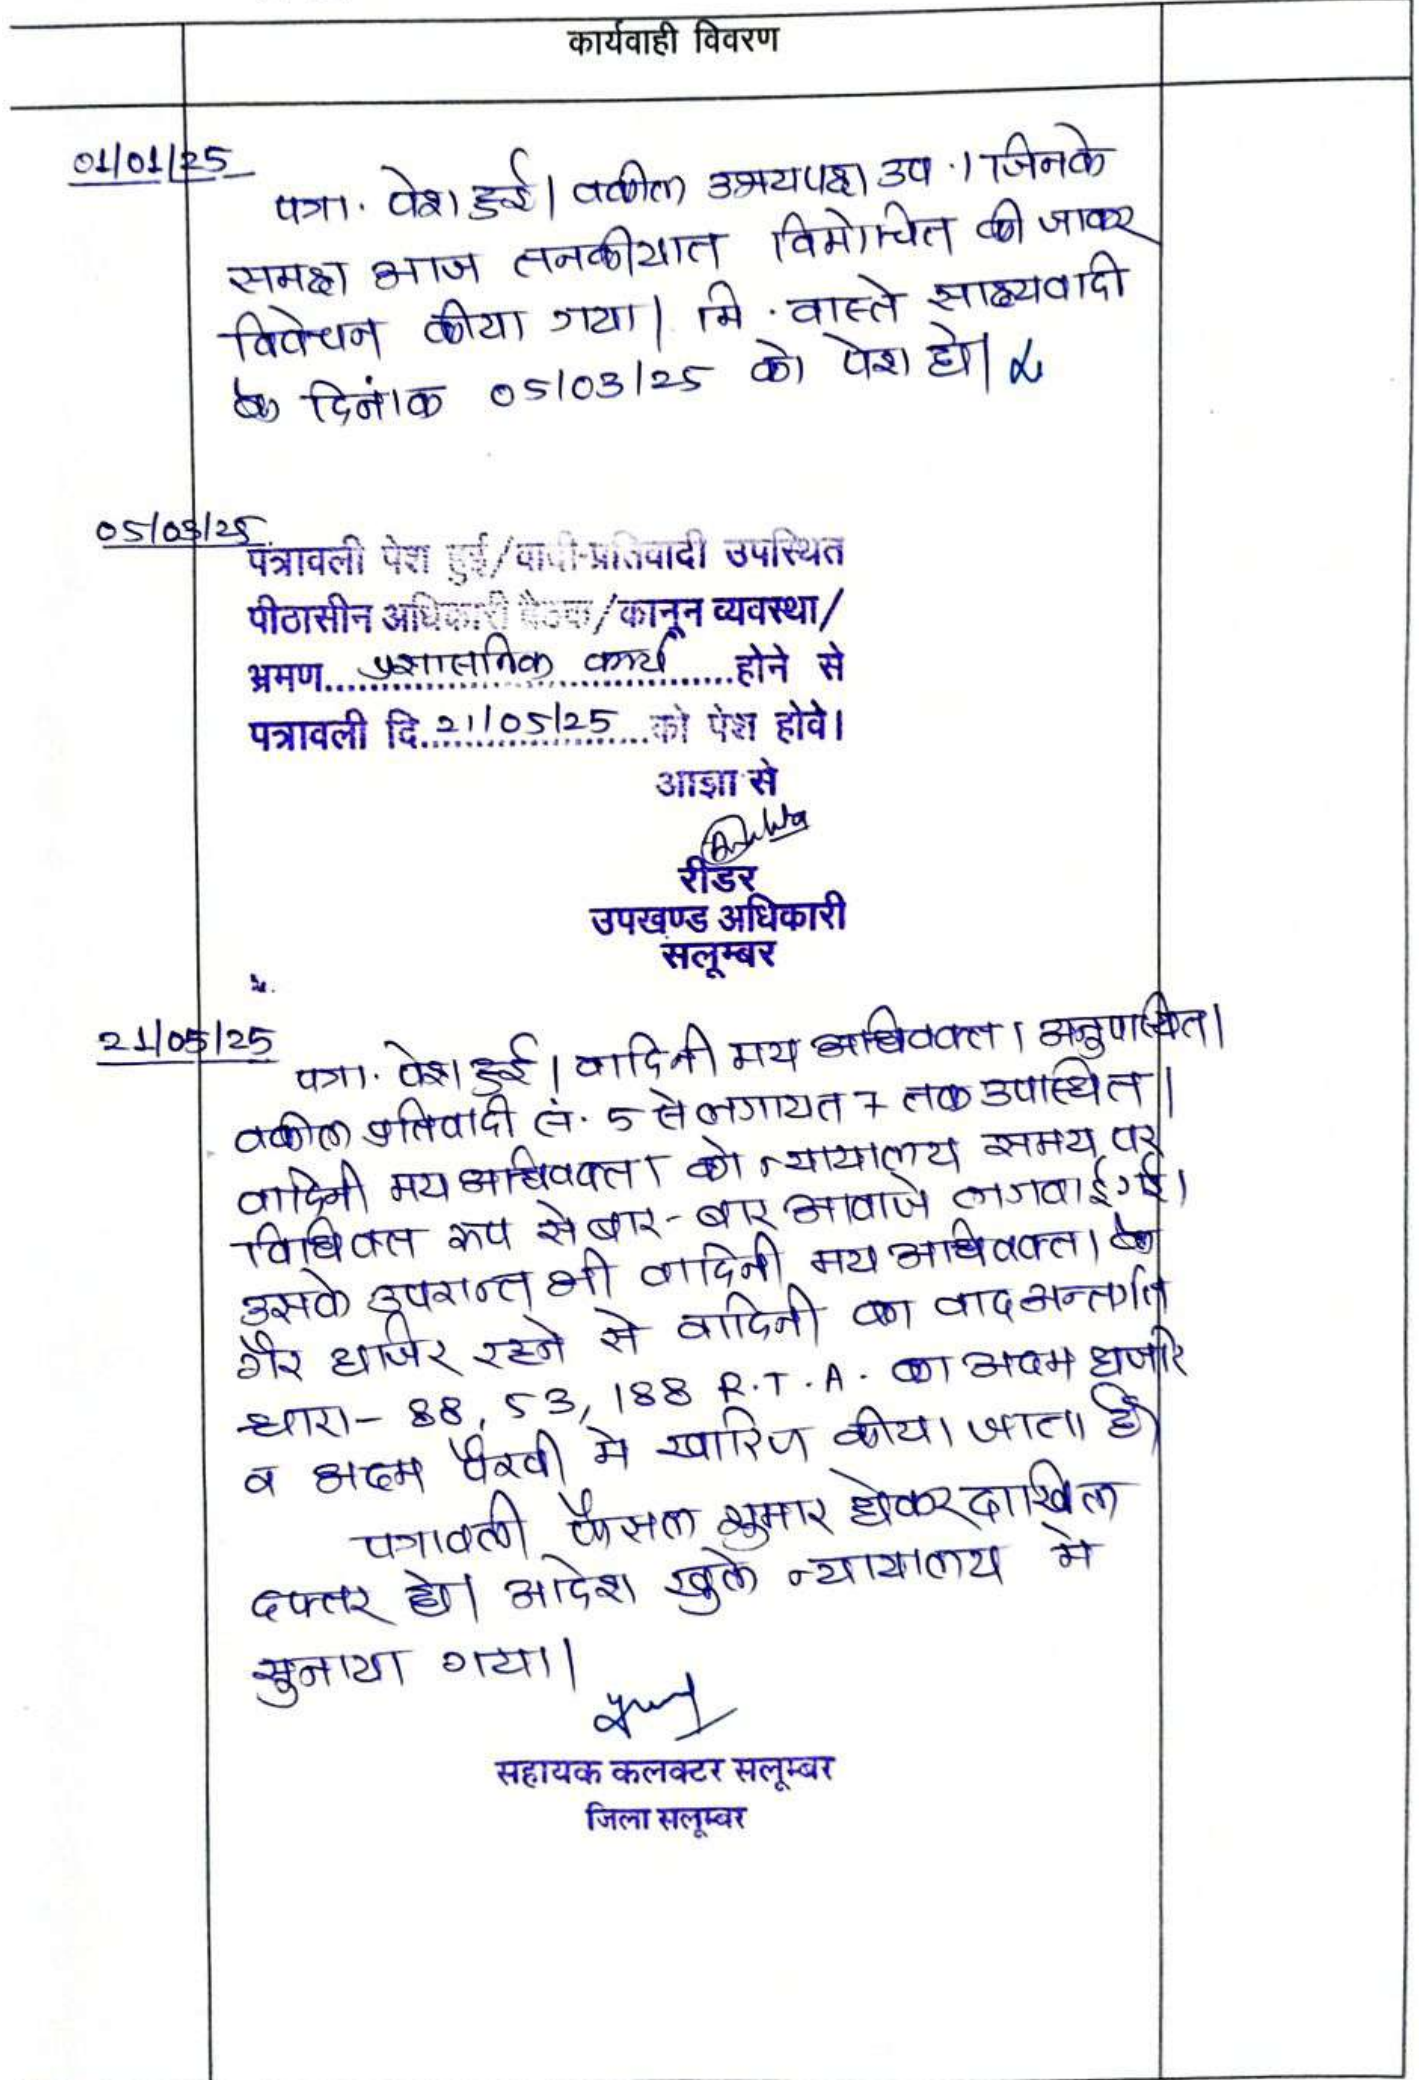 कार्यवाही विवरण
01/01/25
पत्रा. पेश हुई। वकील उभयपक्ष उप.। जिनके
समक्ष आज तनकीयात विमोचित की जाकर
विवेचन कीया गया। मि. वास्ते साक्ष्यवादी
दिनांक 05/03/25 को पेश हो।
05/03/25
पत्रावली पेश हुई/वादी-प्रतिवादी उपस्थित
पीठासीन अधिकारी बैठक/कानून व्यवस्था/
भ्रमण....प्रशासनिक कार्य....होने से
पत्रावली दि.21/05/25....को पेश होवे।
आज्ञा से
रीडर
उपखण्ड अधिकारी
सलूम्बर
21/05/25
पत्रा. पेश हुई। वादिनी मय अधिवक्ता अनुपस्थित।
वकील प्रतिवादी सं. 5 से लगायत 7 तक उपस्थित।
वादिनी मय अधिवक्ता को न्यायालय समय पर
विधिवत रूप से बार-बार आवाजे लगवाई गई।
उसके उपरान्त भी वादिनी मय अधिवक्ता के
गैर हाजिर रहने से वादिनी का वाद अन्तर्गत
धारा- 88, 53, 188 R.T.A. का अदम हाजरि
व अदम पैरवी मे खारिज कीया जाता है।
पत्रावली फैसल शुमार होकर दाखिल
दफ्तर हो। आदेश खुले न्यायालय मे
सुनाया गया।
सहायक कलक्टर सलूम्बर
जिला सलूम्बर